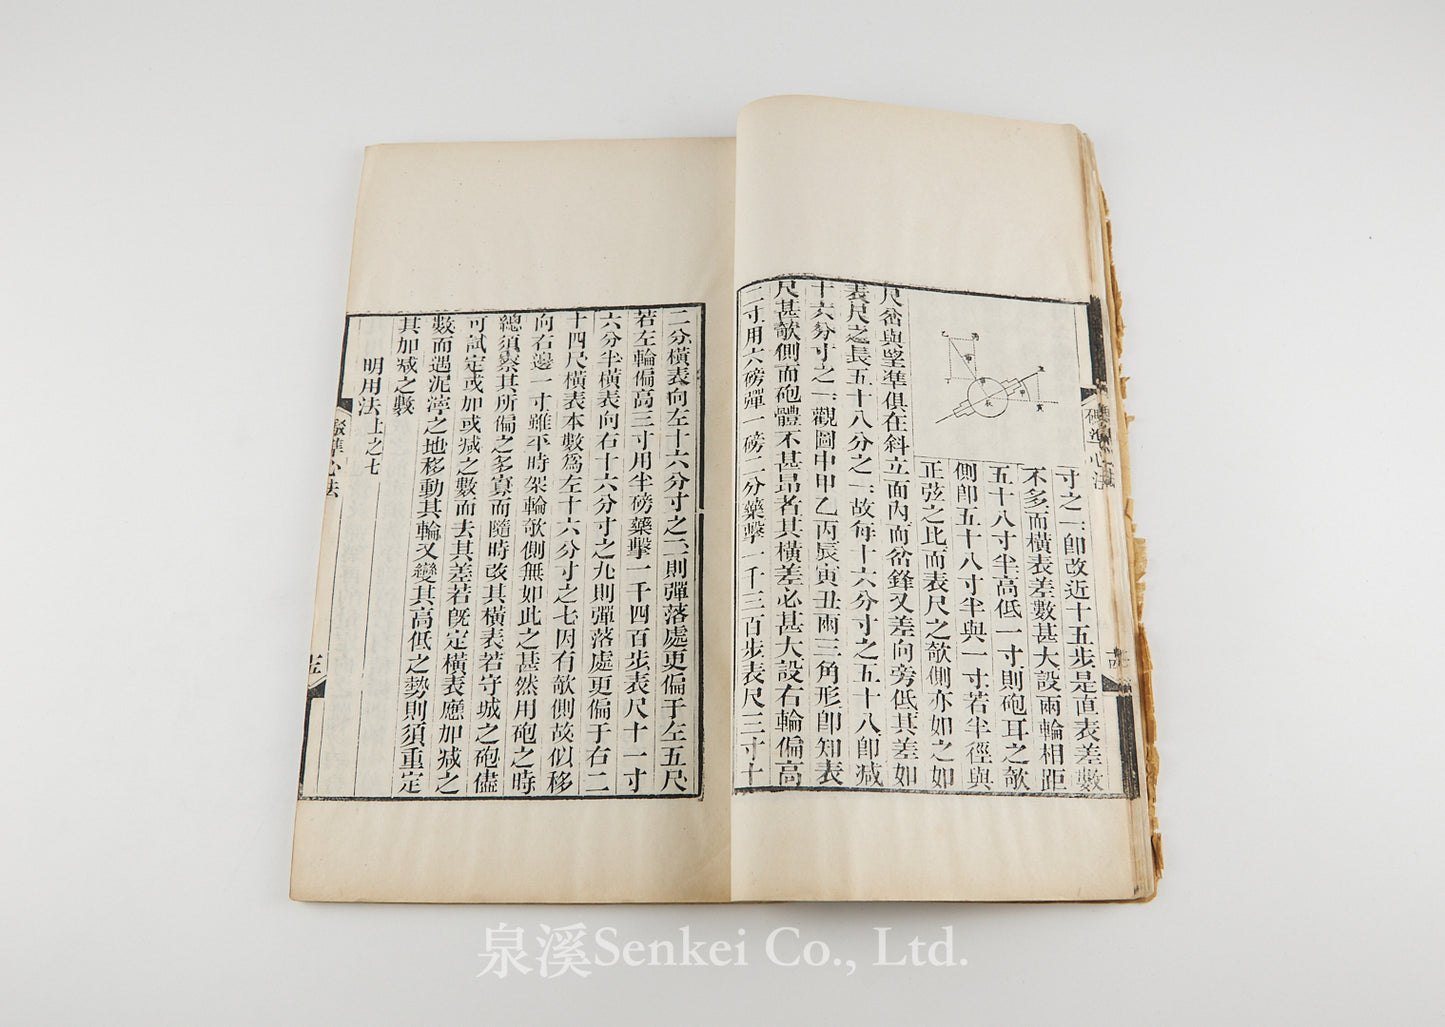 寸之一卽改近十五步是直表差數
不多而橫表差數甚大設兩輪相距
五十八寸半高低一寸則砲耳之欹
側卽五十八寸半與一寸若半徑與
正弦之比而表尺之欹側亦如之如
尺嵞與朢準俱在斜立面內而嵞鋒又差向旁低其差如
表尺之長五十八分之一故每十六分寸之五十八卽減
十六分寸之一觀圖中甲乙丙辰寅丑兩三角形卽知表
尺甚欹側而砲體不甚昂者其橫差必甚大設右輪偏高
二寸用六磅彈一磅二分藥擊一千三百步表尺三寸十
二分橫表向左十六分寸之二則彈落處更偏于左五尺
若左輪偏高三寸用半磅藥擊一千四百步表尺十一寸
六分半橫表向右十六分寸之九則彈落處更偏于右二
十四尺橫表本數爲左十六分寸之七因有欹側故似移
向右邊一寸雖平時架輪欹側無如此之甚然用砲之時
總須察其所偏之多寡而隨時改其橫表若守城之砲儘
可試定或加或減之數而去其差若旣定橫表應加減之
數而遇泥濘之地移動其輪又變其高低之勢則須重定
其加減之數
明用法上之七
泉溪Senkei Co., Ltd.